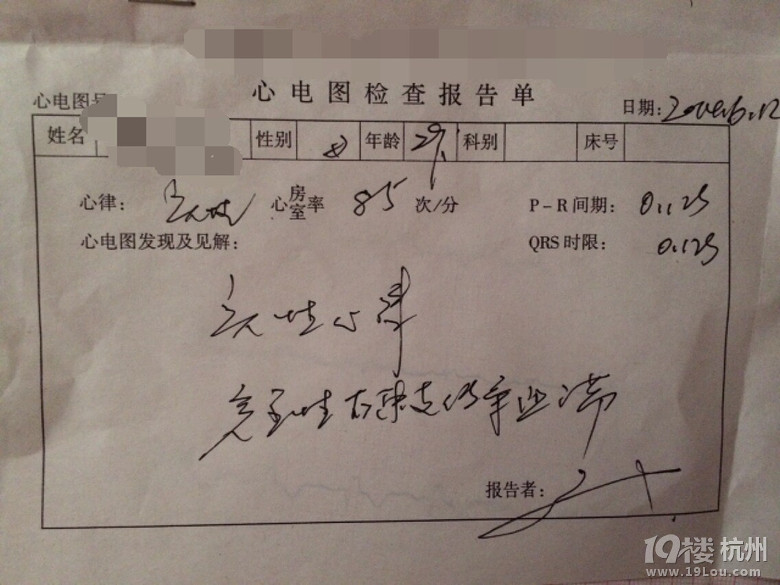 心电图检查报告单
心电图号 日期:
姓名 性别 年龄 29 科别 床号
心律: 窦性 心房室率 85 次/分 P-R间期: 0.12S
心电图发现及见解: QRS时限: 0.12S
窦性心律
完全性右束支传导阻滞
报告者:
19楼 杭州
www.19Lou.com